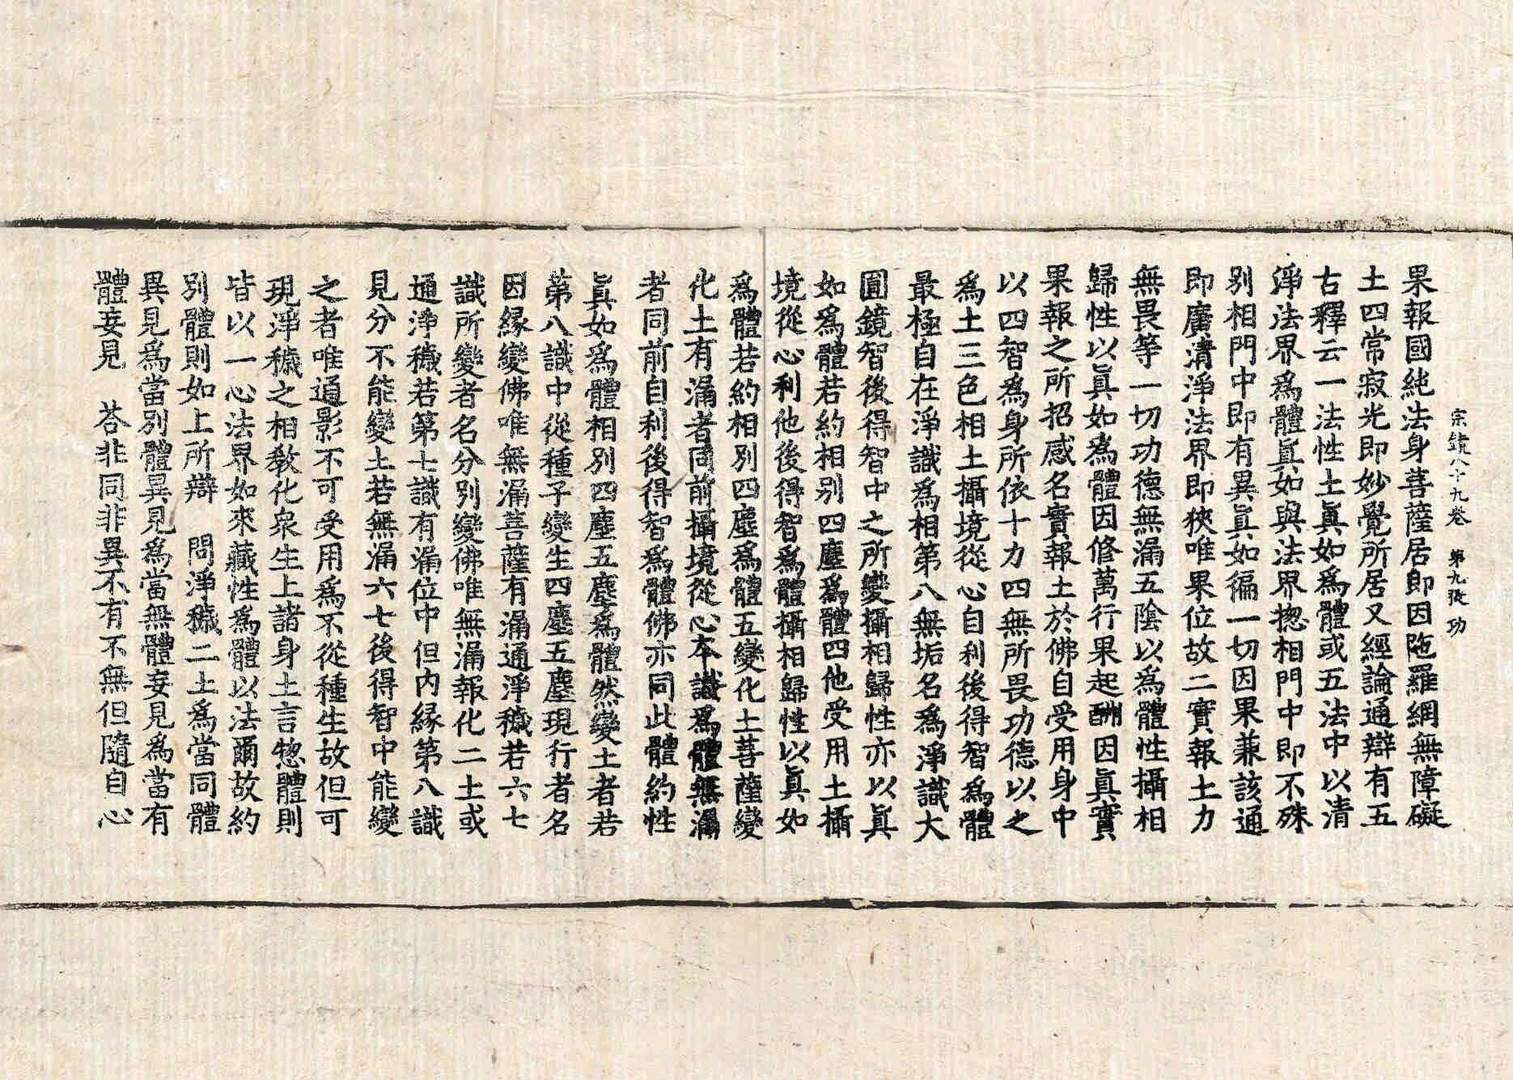 宗鏡八十九卷 第九張 功
果報國純法身菩薩居即因陁羅網無障礙
土四常寂光即妙覺所居又經論通辯有五
古釋云一法性土真如為體或五法中以清
淨法界為體真如與法界揔相門中即不殊
別相門中即有異真如徧一切因果兼該通
即廣清淨法界即狹唯果位故二實報土力
無畏等一切功德無漏五陰以為體性攝相
歸性以真如為體因修萬行果起酬因真實
果報之所招感名實報土於佛自受用身中
以四智為身所依十力四無所畏功德以之
為土三色相土攝境從心自利後得智為體
最極自在淨識為相第八無垢名為淨識大
圓鏡智後得智中之所變攝相歸性亦以真
如為體若約相別四塵為體四他受用土攝
境從心利他後得智為體攝相歸性以真如
為體若約相別四塵為體五變化土菩薩變
化土有漏者同前攝境從心本識為體無漏
者同前自利後得智為體佛亦同此體約性
真如為體相別四塵五塵為體然變土者若
第八識中從種子變生四塵五塵現行者名
因緣變佛唯無漏菩薩有漏通淨穢若六七
識所變者名分別變佛唯無漏報化二土或
通淨穢若第七識有漏位中但內緣第八識
見分不能變土若無漏六七後得智中能變
之者唯通影不可受用為不從種生故但可
現淨穢之相教化衆生上諸身土言揔體則
皆以一心法界如來藏性為體以法爾故約
別體則如上所辯 問淨穢二土為當同體
異見為當別體異見為當無體妄見為當有
體妄見 荅非同非異不有不無但隨自心